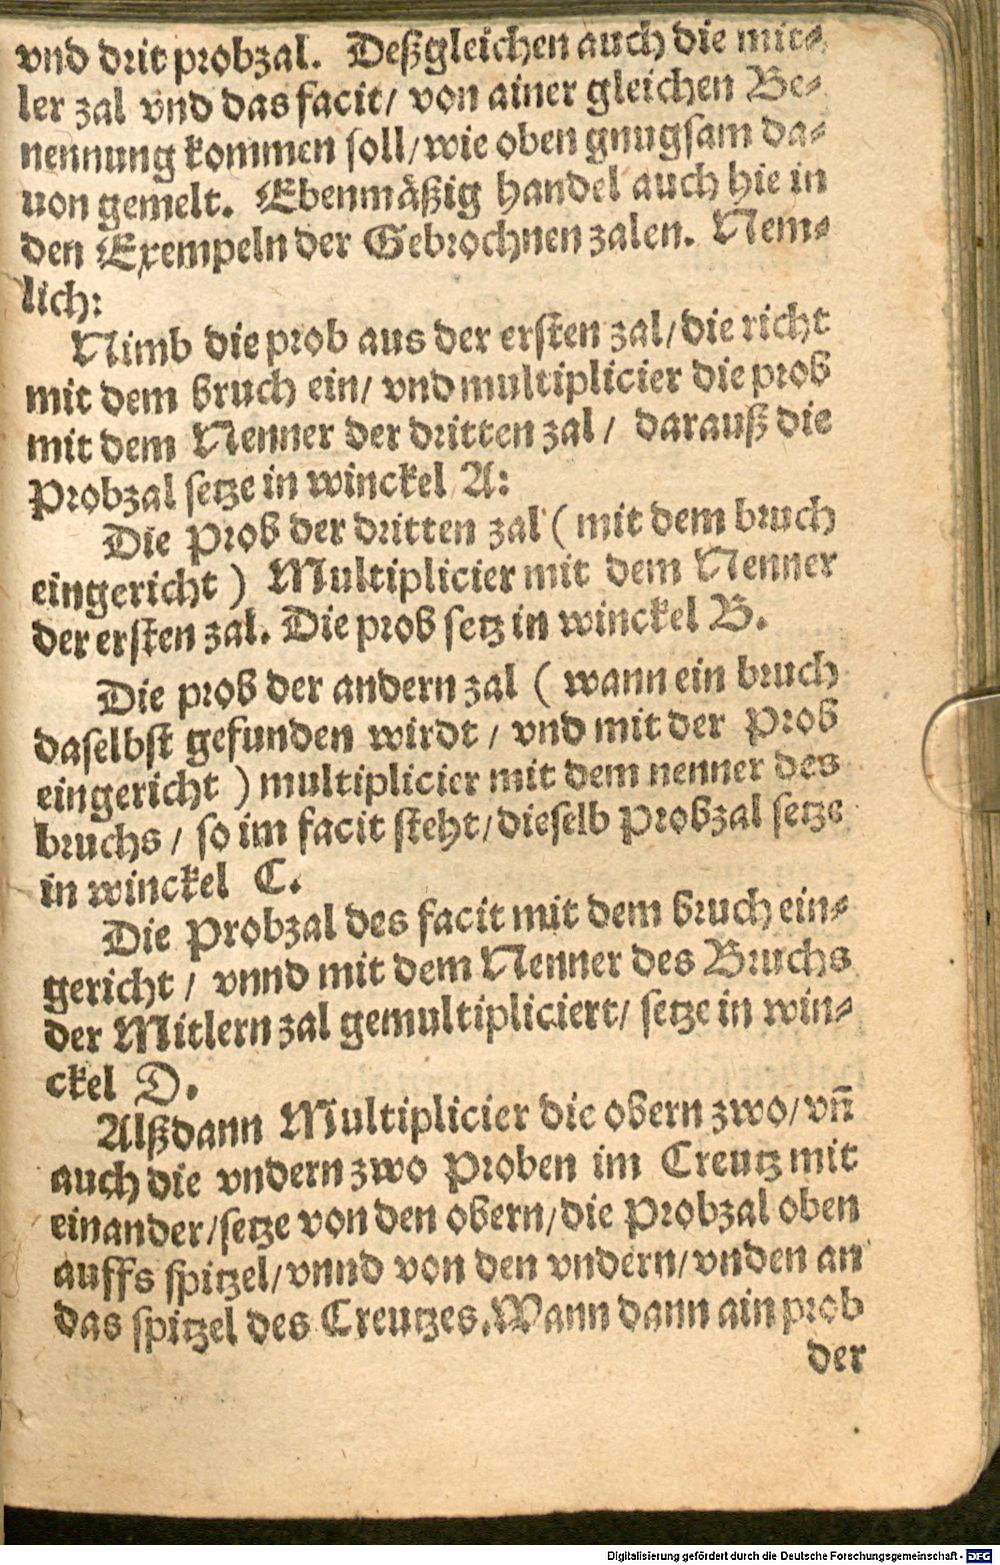 vnd drit probzal. Deßgleichen auch die mit-
ler zal vnd das facit/ von ainer gleichen Be-
nennung kommen soll/wie oben gnugsam da-
uon gemelt. Ebenmäßig handel auch hie in
den Exempeln der Gebrochnen zalen. Nem-
lich:
Nimb die prob aus der ersten zal/die richt
mit dem bruch ein/ vnd multiplicier die prob
mit dem Nenner der dritten zal/ darauß die
Probzal setze in winckel A:
Die Prob der dritten zal (mit dem bruch
eingericht) Multiplicier mit dem Nenner
der ersten zal. Die prob setz in winckel B.
Die prob der andern zal (wann ein bruch
daselbst gefunden wirdt/ vnd mit der Prob
eingericht) multiplicier mit dem nenner des
bruchs/ so im facit steht/dieselb Probzal setze
in winckel C.
Die Probzal des facit mit dem bruch ein-
gericht/ vnnd mit dem Nenner des Bruchs
der Mitlern zal gemultipliciert/ setze in win-
ckel D.
Alßdann Multiplicier die obern zwo/vn̄
auch die vndern zwo Proben im Creutz mit
einander/setze von den obern/die Probzal oben
auffs spitzel/vnnd von den vndern/vnden an
das spitzel des Creutzes.Wann dann ain prob
der
Digitalisierung gefördert durch die Deutsche Forschungsgemeinschaft - DFG